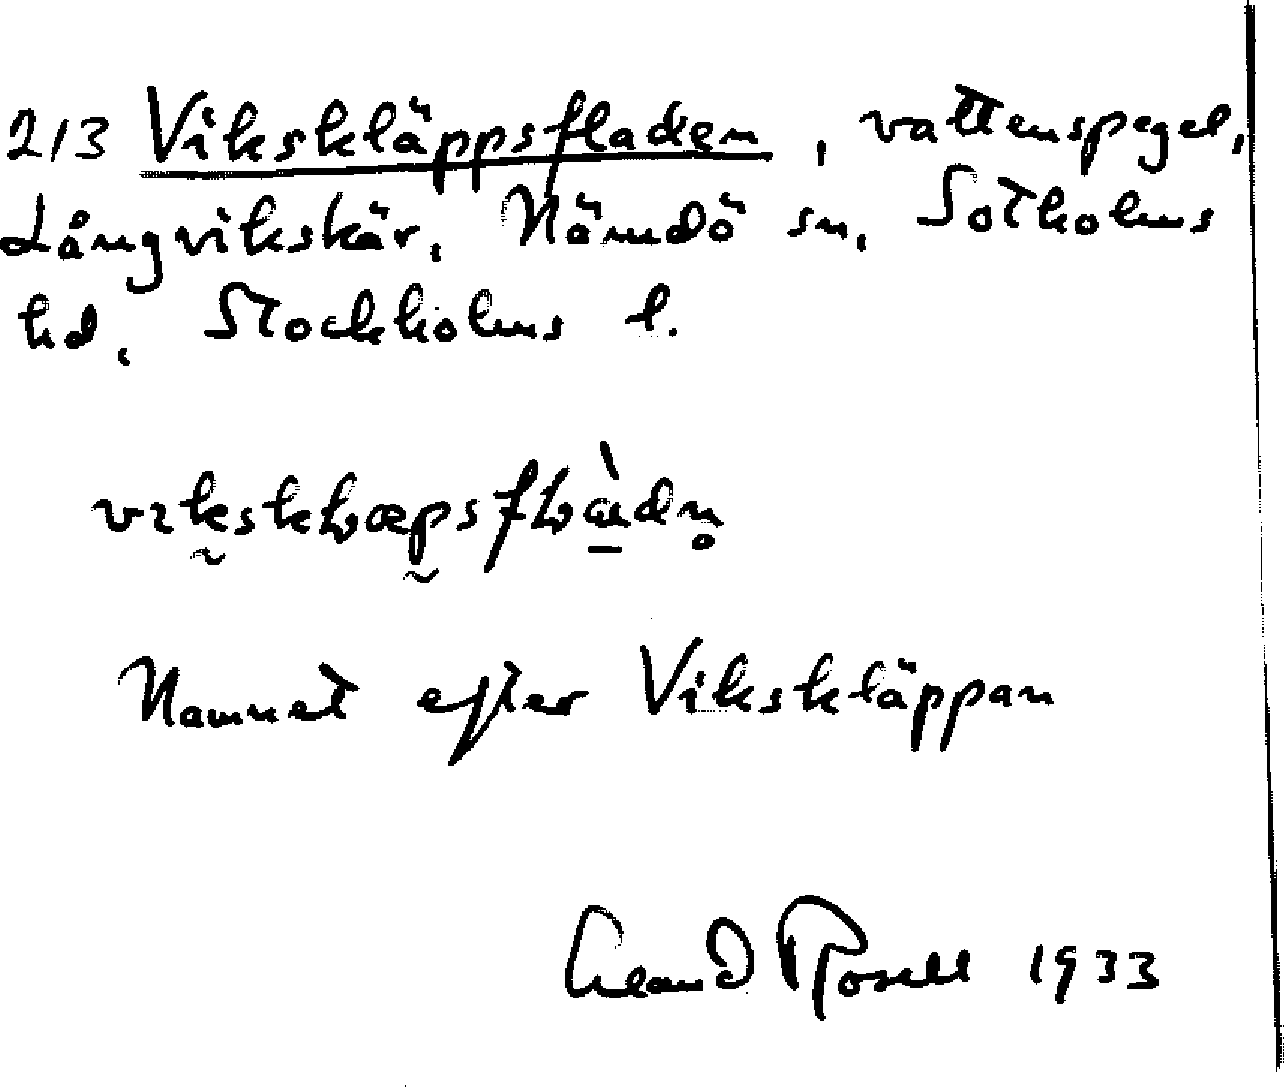 213 Vikskläppsfladen, vattenspegel,
Långvikskär, Nämdö sn, Sotholms
hd, Stockholms l.
Namnet efter Vikskläppan
Rosell 1933